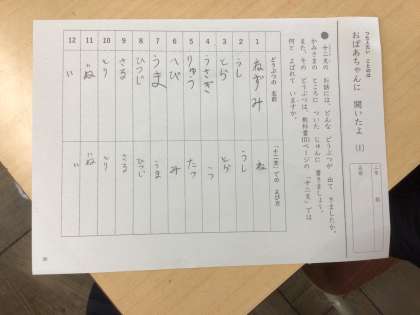 おばあちゃんに 聞いたよ (1)
二年 組
名前
● 十二支の お話には、どんな どうぶつが 出て きましたか。
かみさまの ところに ついた じゅんに 書きましょう。
また、その どうぶつは、教科書 ページの 「十二支」では
何と よばれて いますか。
どうぶつの 名前 「十二支」での よび方
1 ねずみ ね
2 うし うし
3 とら とら
4 うさぎ う
5 りゅう たつ
6 へび み
7 うま うま
8 ひつじ ひつじ
9 さる さる
10 とり とり
11 いぬ いぬ
12 い い